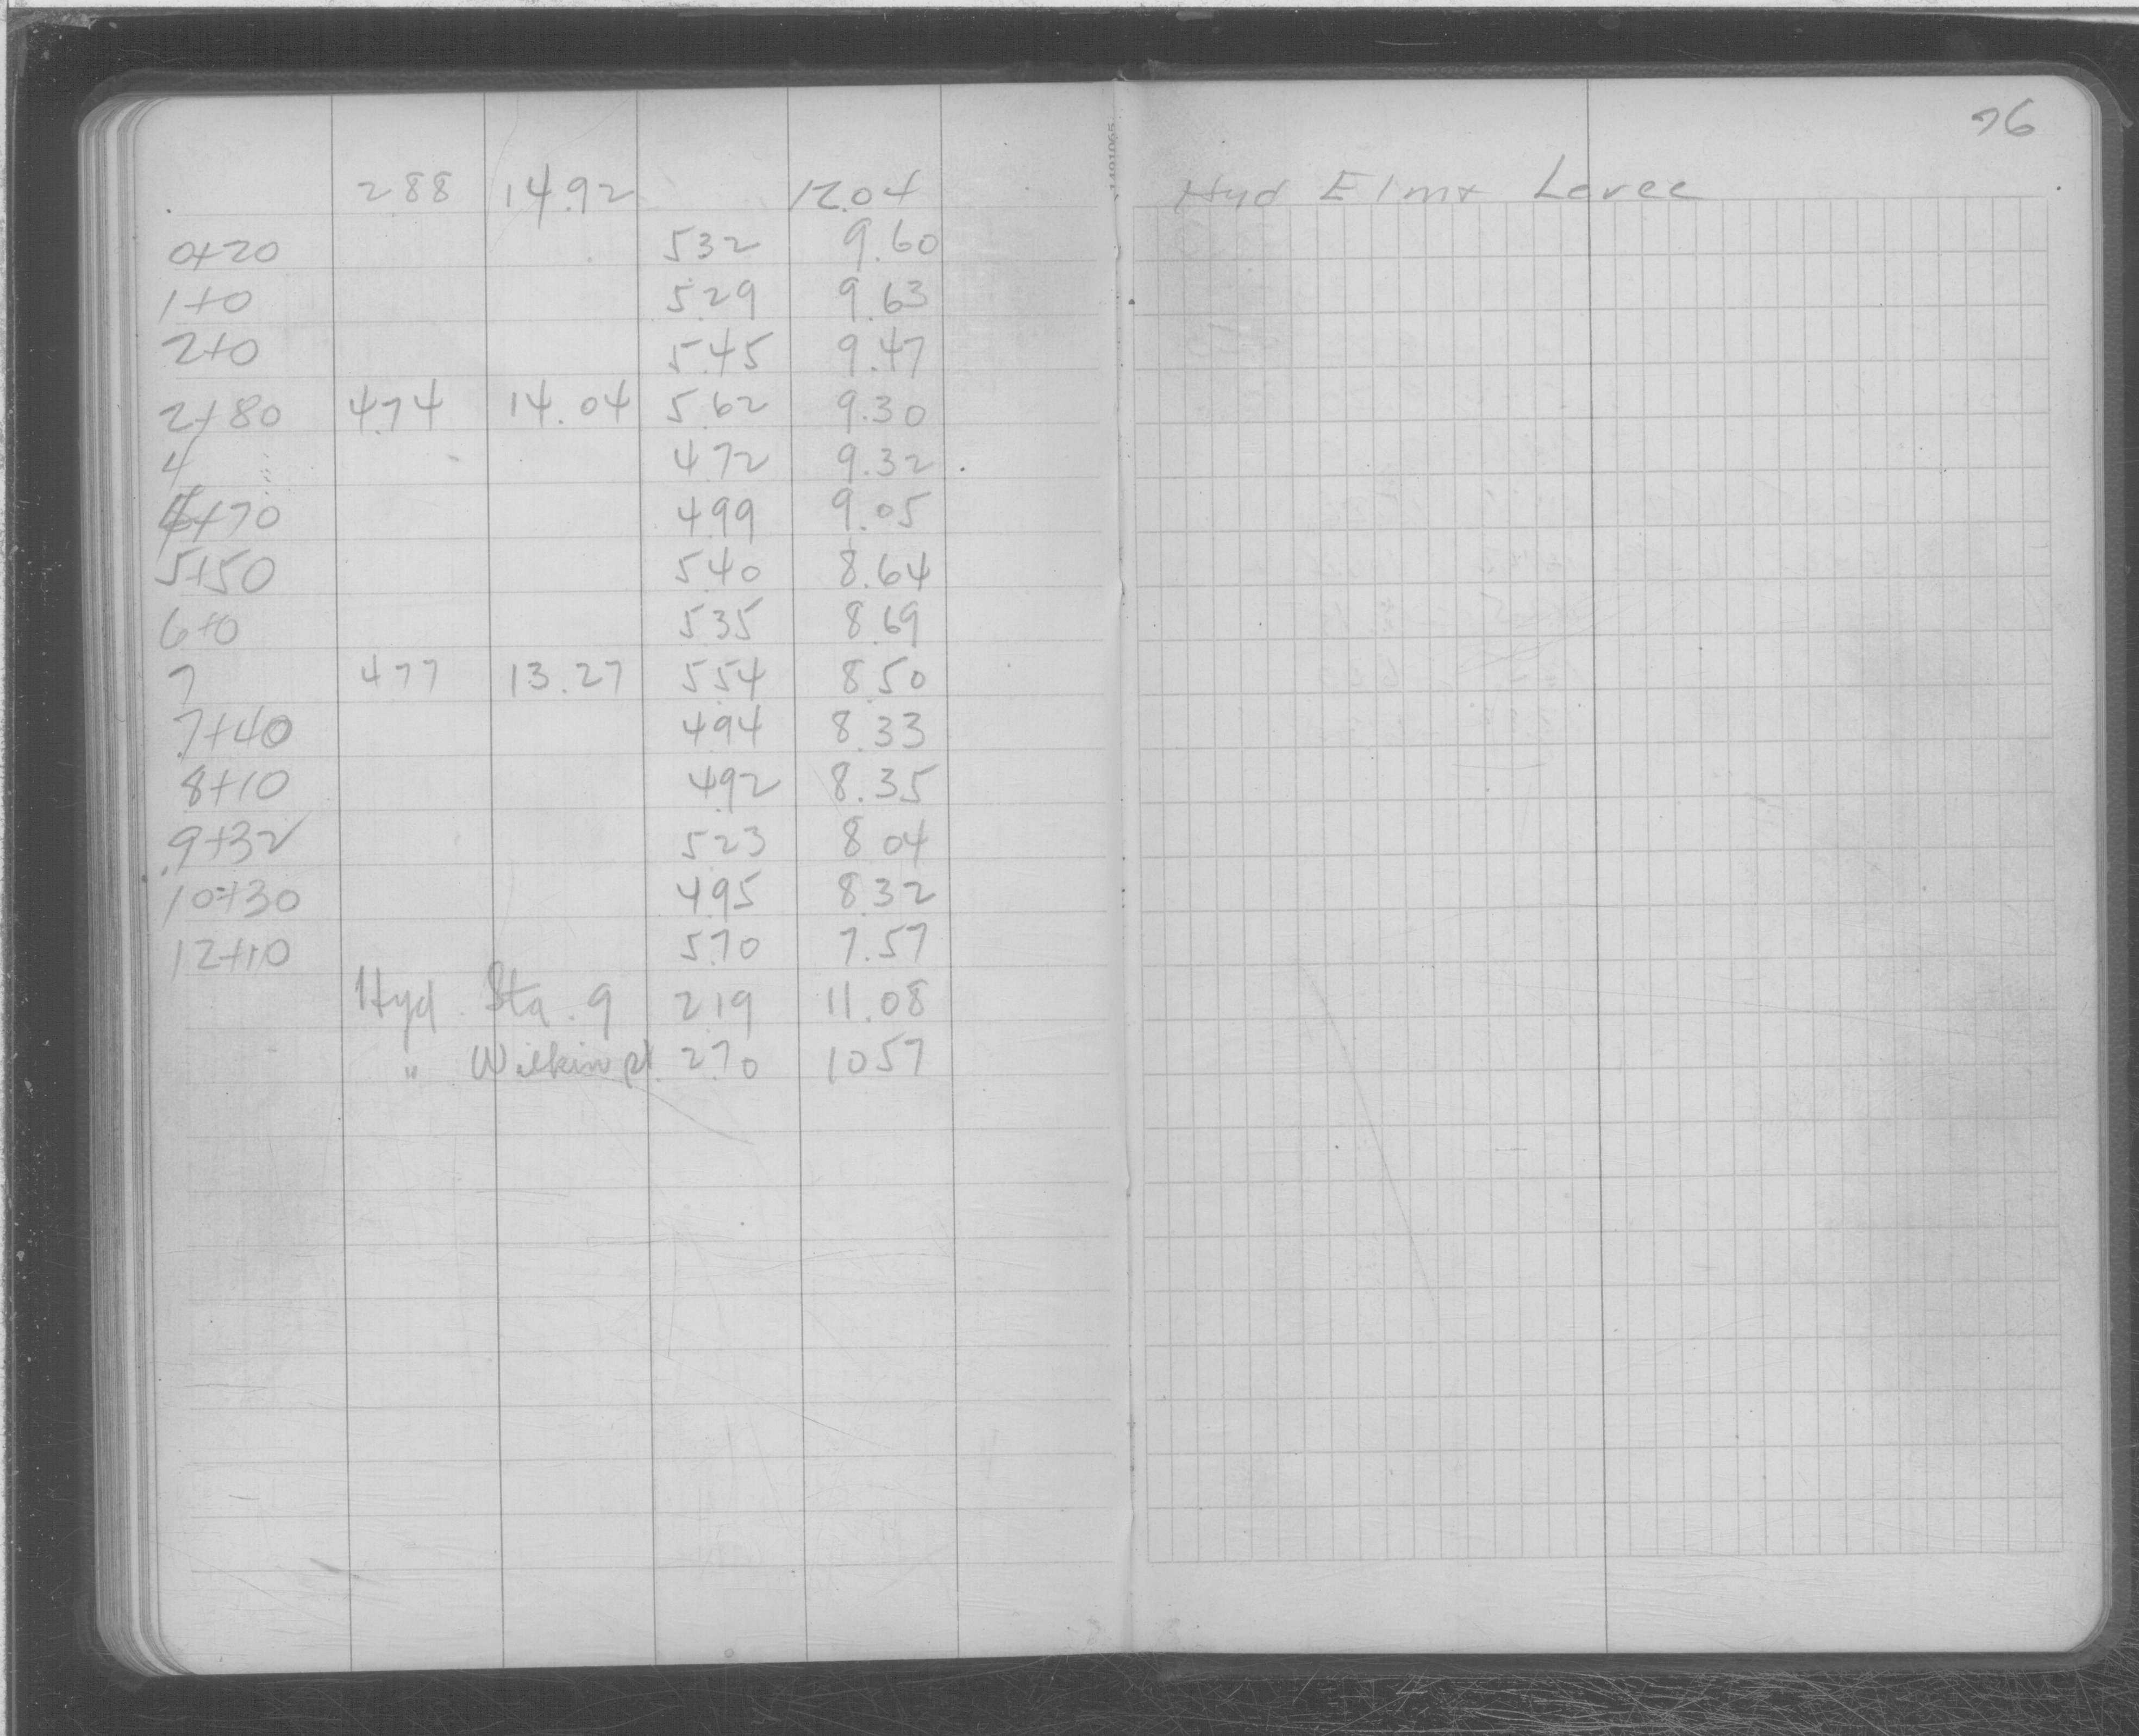 76
288 14.92 12.04 Hyd Elmr Levee
0+20 532 9.60
1+0 5.29 9.63
2+0 5.45 9.47
2+80 4.74 14.04 5.62 9.30
4 4.72 9.32
+70 4.99 9.05
5+50 540 8.64
6+0 5.35 8.69
7 477 13.27 5.54 8.50
7+40 4.94 8.33
8+10 4.92 8.35
9+32 5.23 8 04
10+30 4.95 8.32
12+10 5.70 7.57
Hyd. Sta. 9 2.19 11.08
" Wilkin pl. 2.70 10 57